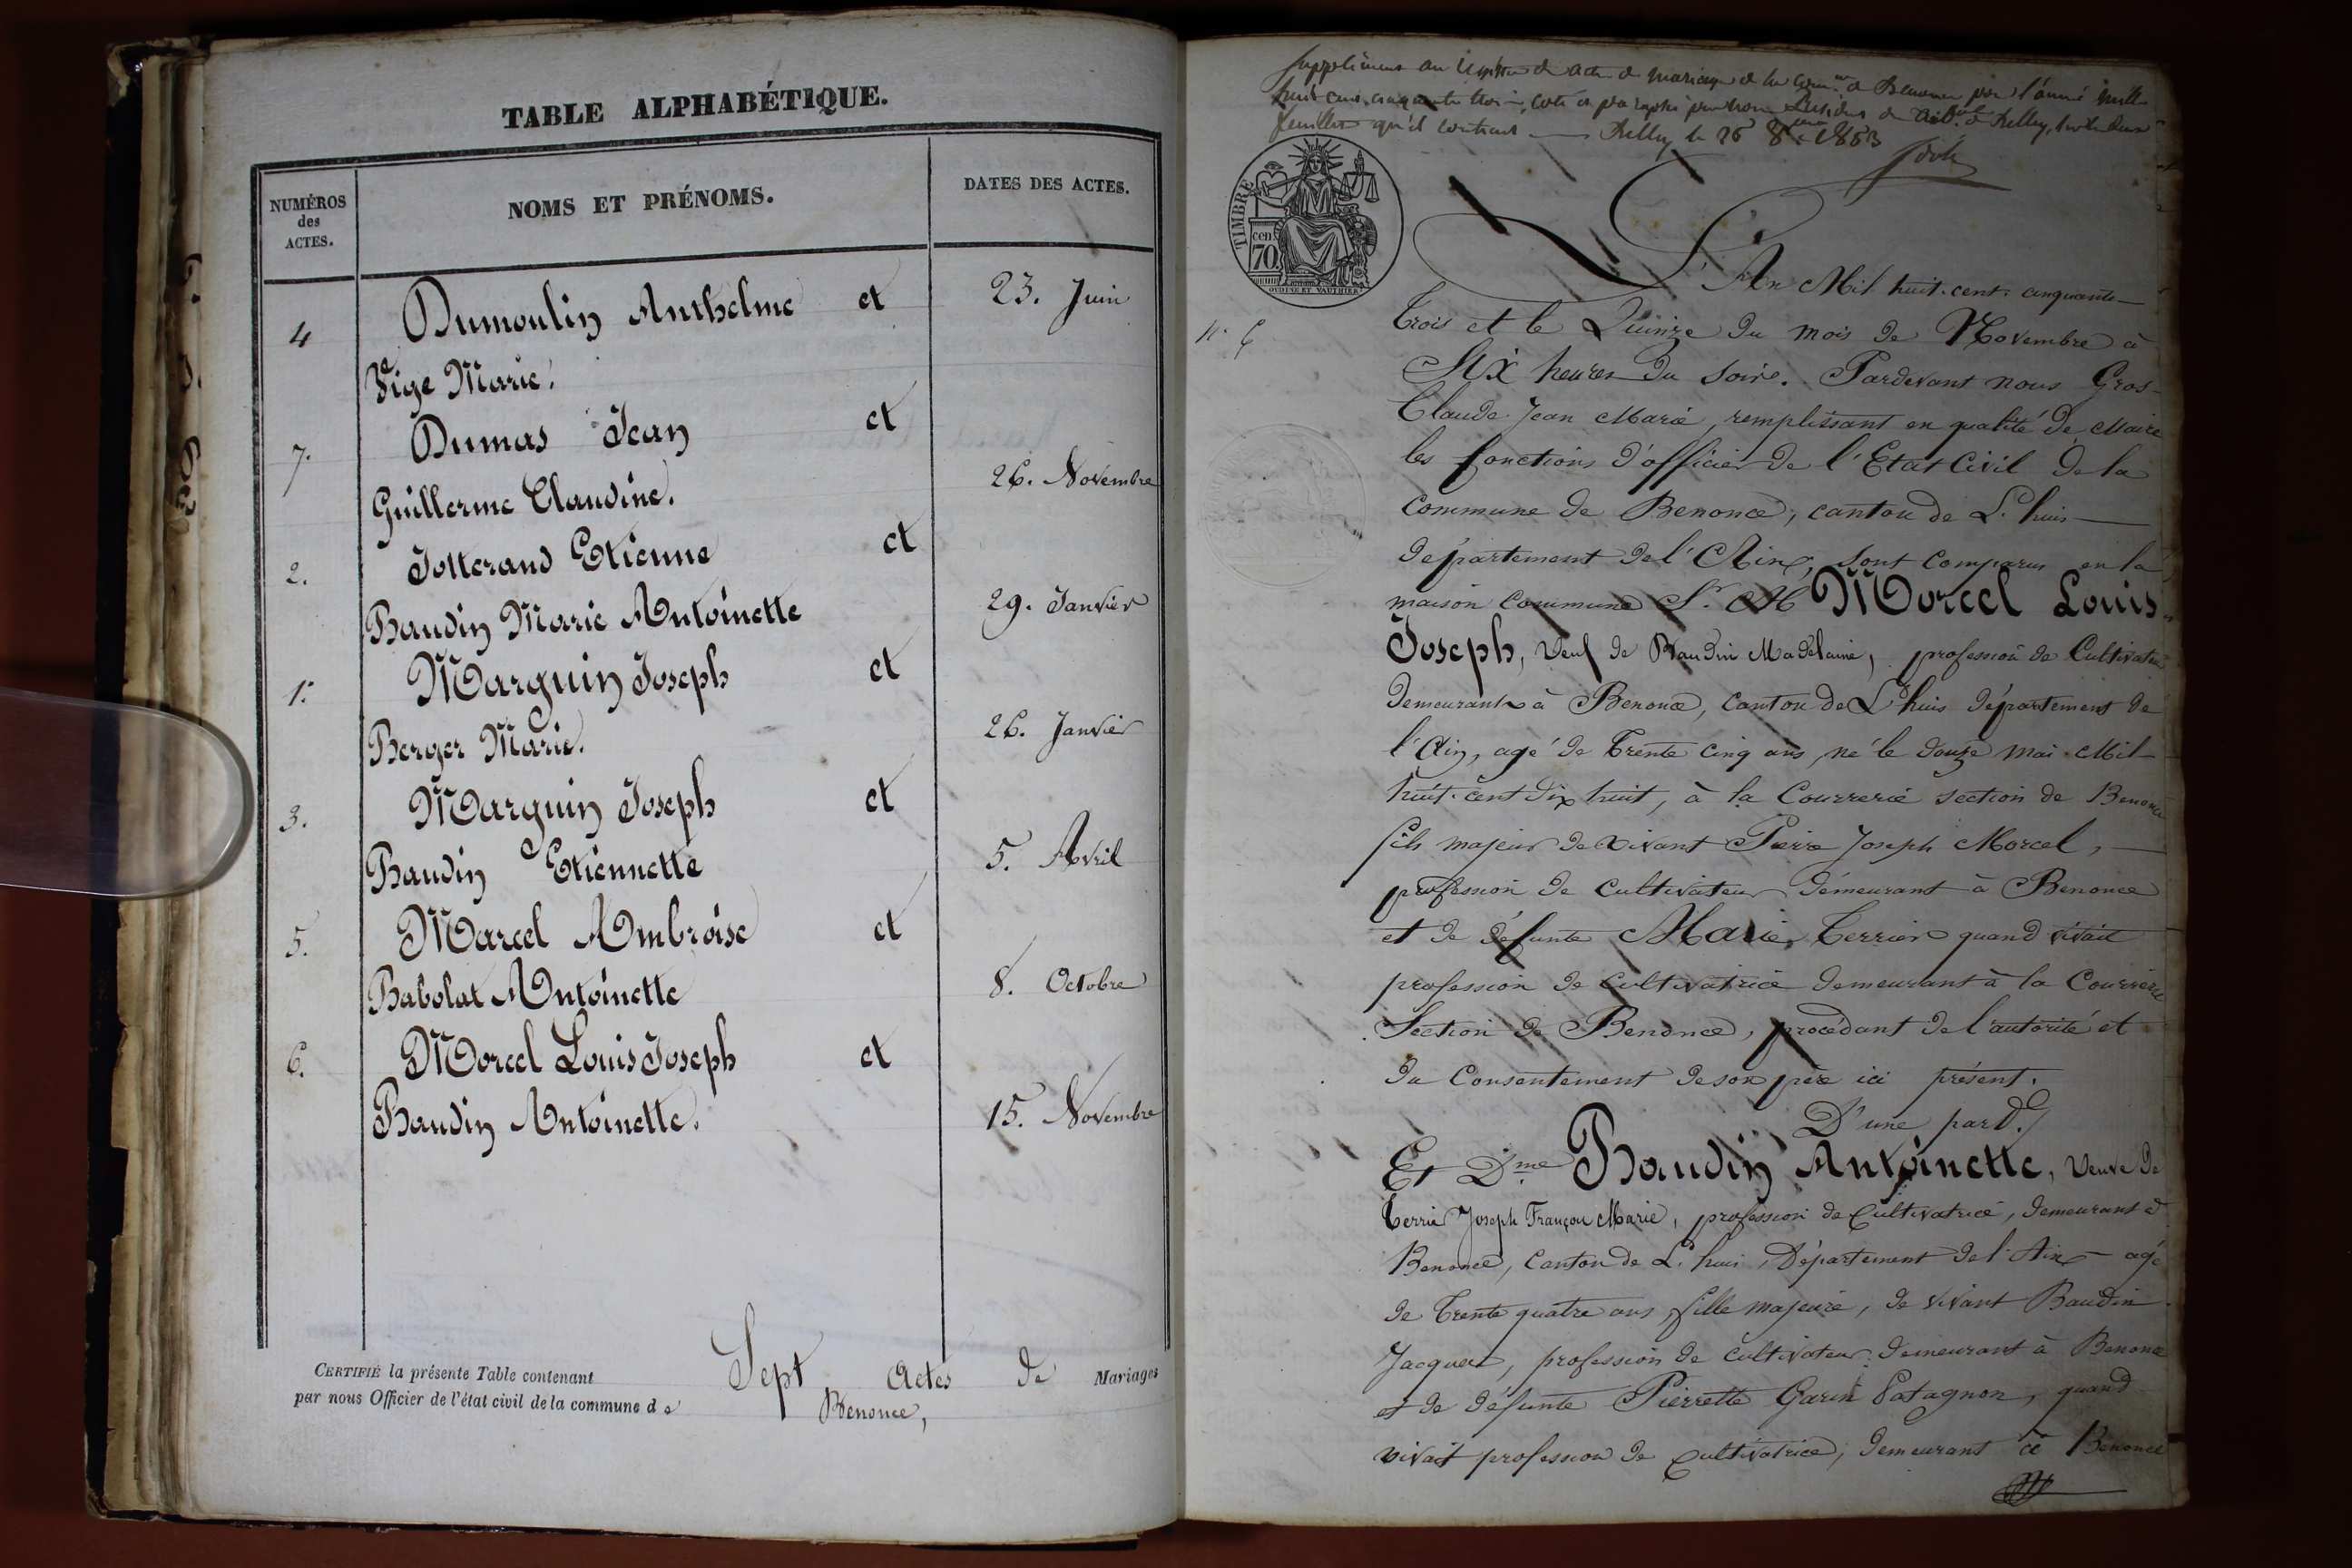 TABLE ALPHABÉTIQUE.
NUMÉROS
des
ACTES.
NOMS ET PRÉNOMS.
DATES DES ACTES.
4 Dumoulin Anthelme et 23. Juin
Vige Marie.
7. Dumas Jean et
Guillerme Claudine. 26. Novembre
2. Jolterand Etienne et
Baudin Marie Antoinette 29. Janvier
1. Marguin Joseph et
Berger Marie. 26. Janvier
3. Marguin Joseph et
Baudin Etiennette 5. Avril
5. Marcel Ambroise et
Babolat Antoinette 8. Octobre
6. Morcel Louis Joseph et
Baudin Antoinette. 15. Novembre
CERTIFIÉ la présente Table contenant Sept actes de Mariages
par nous Officier de l'état civil de la commune de Benonce,
Supplément au de acte de mariage de la de Benonce pour l'année mille
huit cent cinquante trois, coté et paraphé par nous Président du de Belley,
feuillet qu'il contient Belley le 26 8bre 1853
TIMBRE
cen
70
OUDINÉ ET VAUTHIER
L'An Mil huit cent cinquante
n.° 6
trois et le Quinze du mois de Novembre à
Six heures du soire. Pardevant nous Gros-
Claude Jean Marie, remplissant en qualité de Maire
les fonctions d'officier de l'Etat Civil de la
Commune de Benonce, canton de L'huis
département de l'Ain, sont comparus en la
maison commune Sr. Morcel Louis
Joseph, veuf de Baudin Madelaine, profession de Cultivateur
demeurant à Benonce, canton de L'huis département de
l'Ain, agé de trente cinq ans, né le douze mai Mil
huit cent dix huit, à la Courrerie section de Benonce
fils majeur de vivant Pierre Joseph Morcel,
profession de cultivateur démeurant à Benonce
et de défunte Marie Terrier quand vivait
profession de cultivatrice demeurant à la Courrerie
Section de Benonce, procédant de l'autorité et
du Consentement de son père ici présent.
D'une part.
Et Dme Baudin Antoinette, veuve de
Terrier Joseph François Marie, profession de Cultivatrice, demeurant à
Benonce, canton de L'huis, Département de l'Ain agé
de trente quatre ans, fille majeure, de vivant Baudin
Jacques, profession de cultivateur demeurant à Benonce
et de défunte Pierrette Garin Patagnon, quand
vivait profession de cultivatrice, demeurant à Benonce